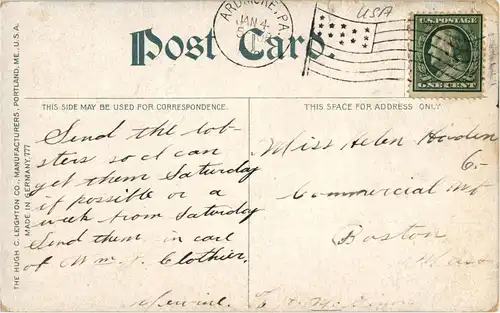 Post Card.
ARDMORE, PA.
JAN 4
USA
U.S. POSTAGE
ONE CENT
THIS SIDE MAY BE USED FOR CORRESPONDENCE.
THIS SPACE FOR ADDRESS ONLY
THE HUGH C. LEIGHTON CO., MANUFACTURERS, PORTLAND, ME., U.S.A.
MADE IN GERMANY. 777
Send the lob-
sters so I can
get them Saturday
if possible or a
week from Saturday
Send them in care
of Wm Clothier.
Miss Helen
6-
Commercial
Boston
Mass